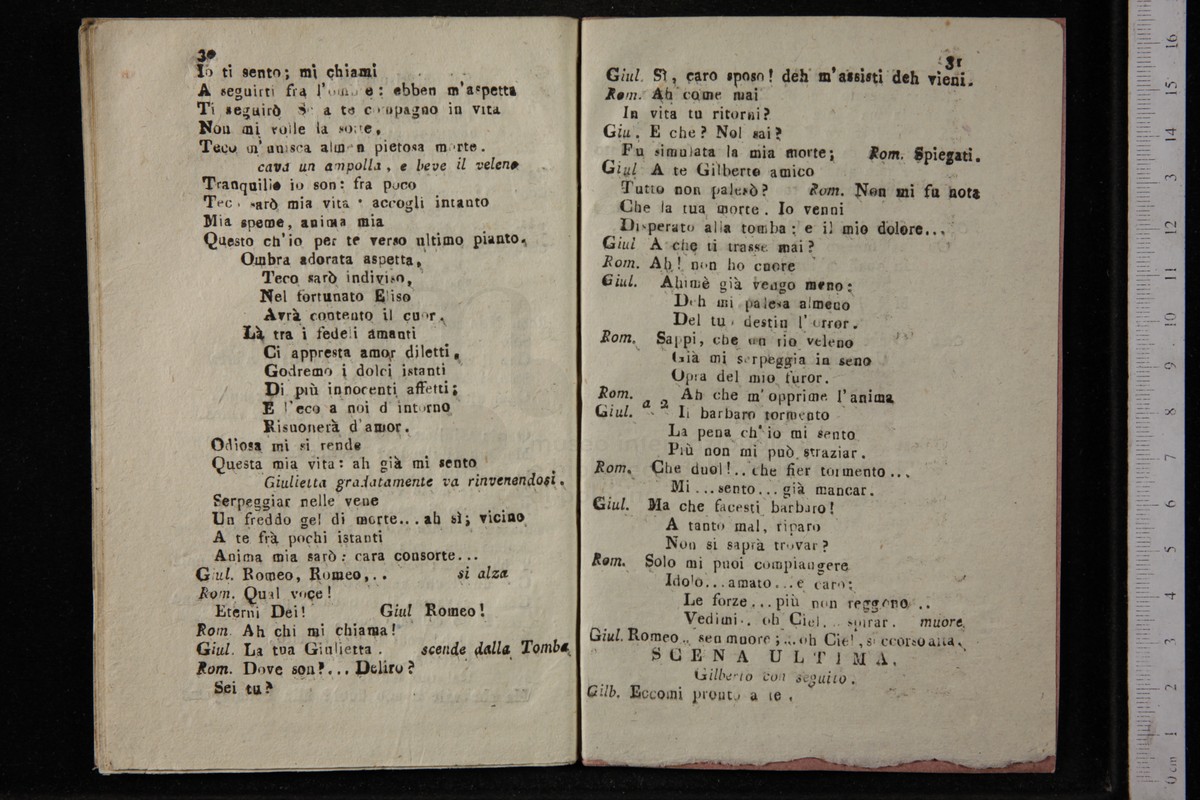 30
Io ti sento; mi chiami
A seguirti fra l'ombre: ebben m'aspetta
Ti seguirò Se a te compagno in vita
Non mi volle la sorte,
Teco m'unisca almen pietosa morte.
cava un ampolla, e beve il veleno
Tranquillo io son: fra poco
Teco sarò mia vita accogli intanto
Mia speme, anima mia
Questo ch'io per te verso ultimo pianto.
Ombra adorata aspetta,
Teco sarò indiviso,
Nel fortunato Eliso
Avrà contento il cuor.
Là tra i fedeli amanti
Ci appresta amor diletti,
Godremo i dolci istanti
Di più innocenti affetti;
E l'eco a noi d'intorno
Risuonerà d'amor.
Odiosa mi si rende
Questa mia vita: ah già mi sento
Giulietta gradatamente va rinvenendosi.
Serpeggiar nelle vene
Un freddo gel di morte... ah sì; vicino
A te frà pochi istanti
Anima mia sarò: cara consorte...
Giul. Romeo, Romeo,.. si alza
Rom. Qual voce!
Eterni Dei! Giul Romeo!
Rom. Ah chi mi chiama!
Giul. La tua Giulietta. scende dalla Tomba
Rom. Dove son?... Deliro?
Sei tu?
31
Giul. Sì, caro sposo! deh m'assisti deh vieni.
Rom. Ah come mai
In vita tu ritorni?
Giu. E che? Nol sai?
Fu simulata la mia morte; Rom. Spiegati.
Giul A te Gilberto amico
Tutto non palesò? Rom. Non mi fu nota
Che la tua morte. Io venni
Disperato alla tomba; e il mio dolore...
Giul A che ti trasse mai?
Rom. Ah! non ho cuore
Giul. Ahimè già vengo meno:
Deh mi palesa almeno
Del tuo destin l'orror.
Rom. Sappi, che un rio veleno
Già mi serpeggia in seno
Opra del mio furor.
Rom. a 2 Ah che m'opprime l'anima
Giul. Il barbaro tormento
La pena ch'io mi sento
Più non mi può straziar.
Rom. Che duol!.. che fier tormento...
Mi...sento...già mancar.
Giul. Ma che facesti barbaro!
A tanto mal, riparo
Non si saprà trovar?
Rom. Solo mi puoi compiangere
Idolo...amato...e caro;
Le forze...più non reggono..
Vedimi.. oh Ciel.. spirar. muore.
Giul. Romeo.. sen muore;...oh Ciel, soccorso aita.
SCENA ULTIMA.
Gilberto con seguito.
Gilb. Eccomi pronto a te.